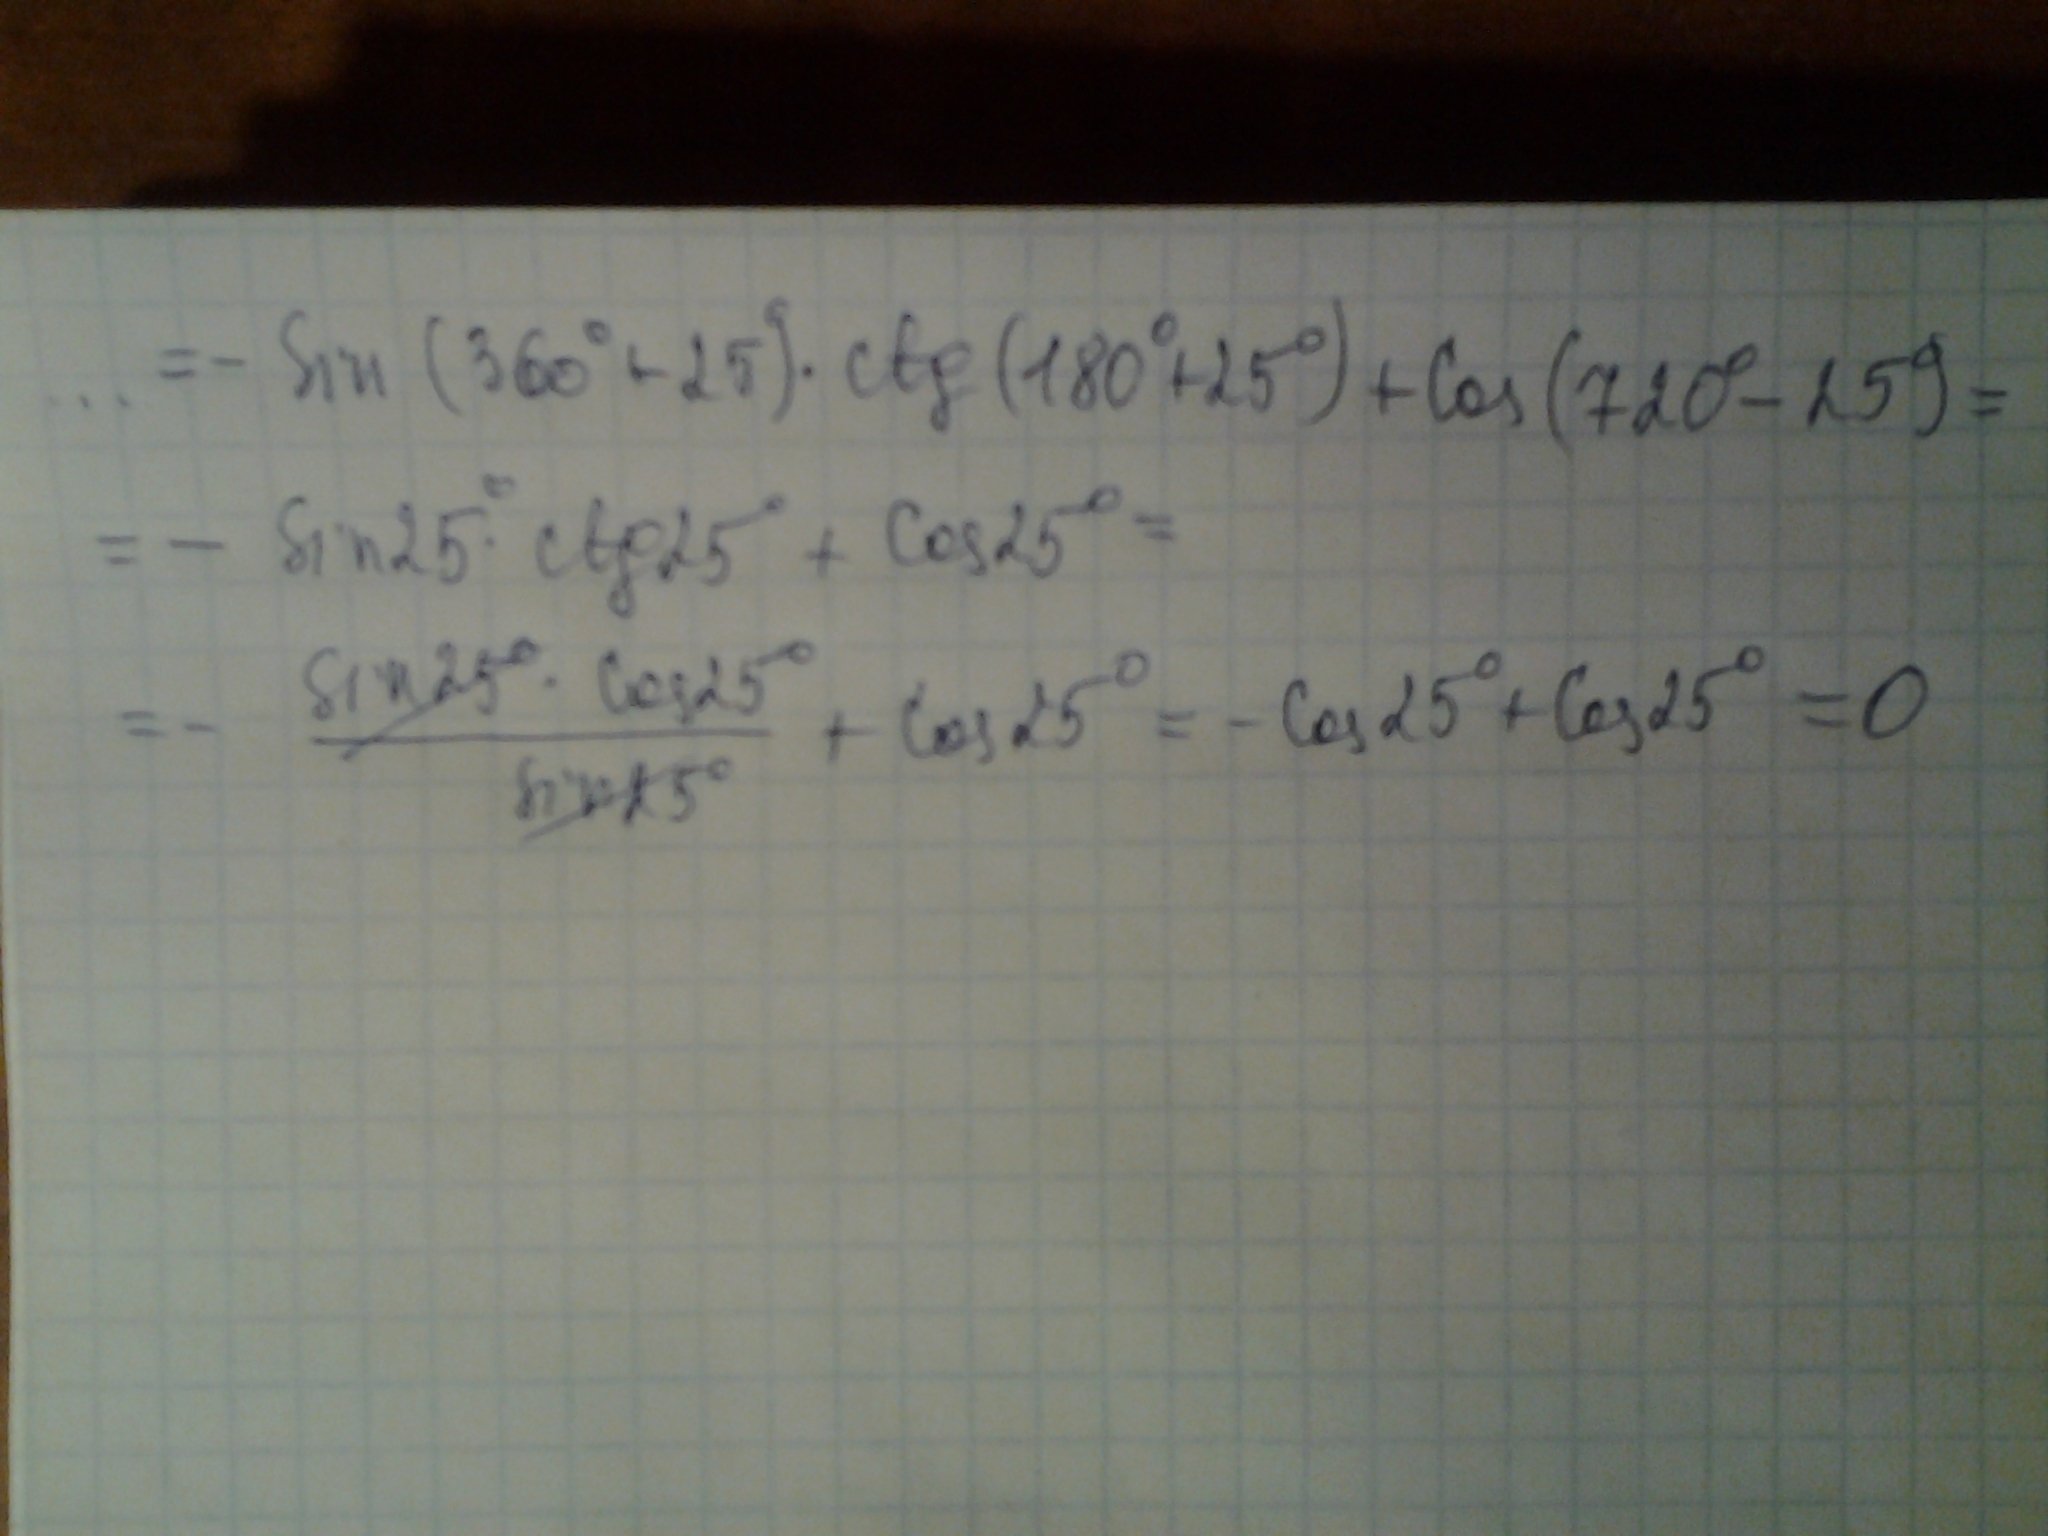 ... = - Sin (360° + 25°) · ctg (180° + 25°) + Cos (720° - 25°) =
= - Sin25° · ctg25° + Cos25° =
= - Sin25° · Cos25° / Sin25° + Cos25° = - Cos25° + Cos25° = 0